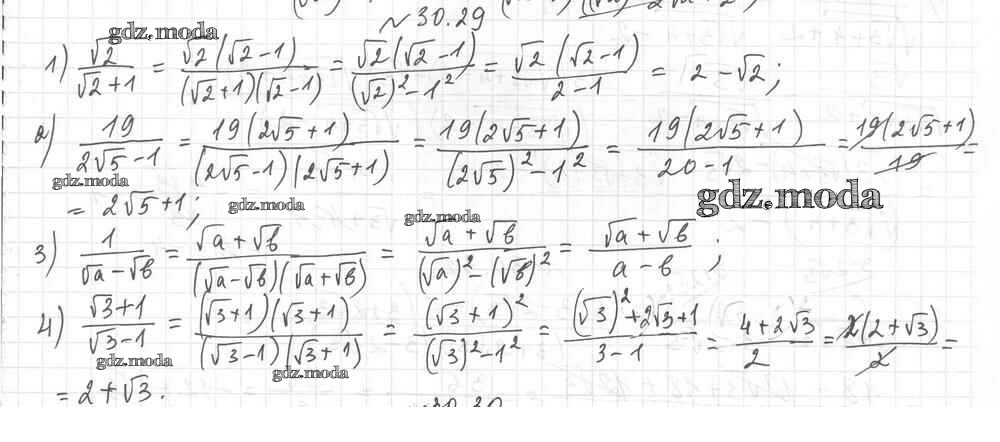 № 30.29
gdz.moda
1) √2/(√2+1) = √2(√2-1)/((√2+1)(√2-1)) = √2(√2-1)/((√2)²-1²) = √2(√2-1)/(2-1) = 2-√2;
2) 19/(2√5-1) = 19(2√5+1)/((2√5-1)(2√5+1)) = 19(2√5+1)/((2√5)²-1²) = 19(2√5+1)/(20-1) = 19(2√5+1)/19 =
gdz.moda
= 2√5+1;
gdz.moda
gdz.moda
gdz.moda
3) 1/(√a-√b) = (√a+√b)/((√a-√b)(√a+√b)) = (√a+√b)/((√a)²-(√b)²) = (√a+√b)/(a-b);
4) (√3+1)/(√3-1) = (√3+1)(√3+1)/((√3-1)(√3+1)) = (√3+1)²/((√3)²-1²) = ((√3)²+2√3+1)/(3-1) = (4+2√3)/2 = 2(2+√3)/2 =
gdz.moda
gdz.moda
= 2+√3.